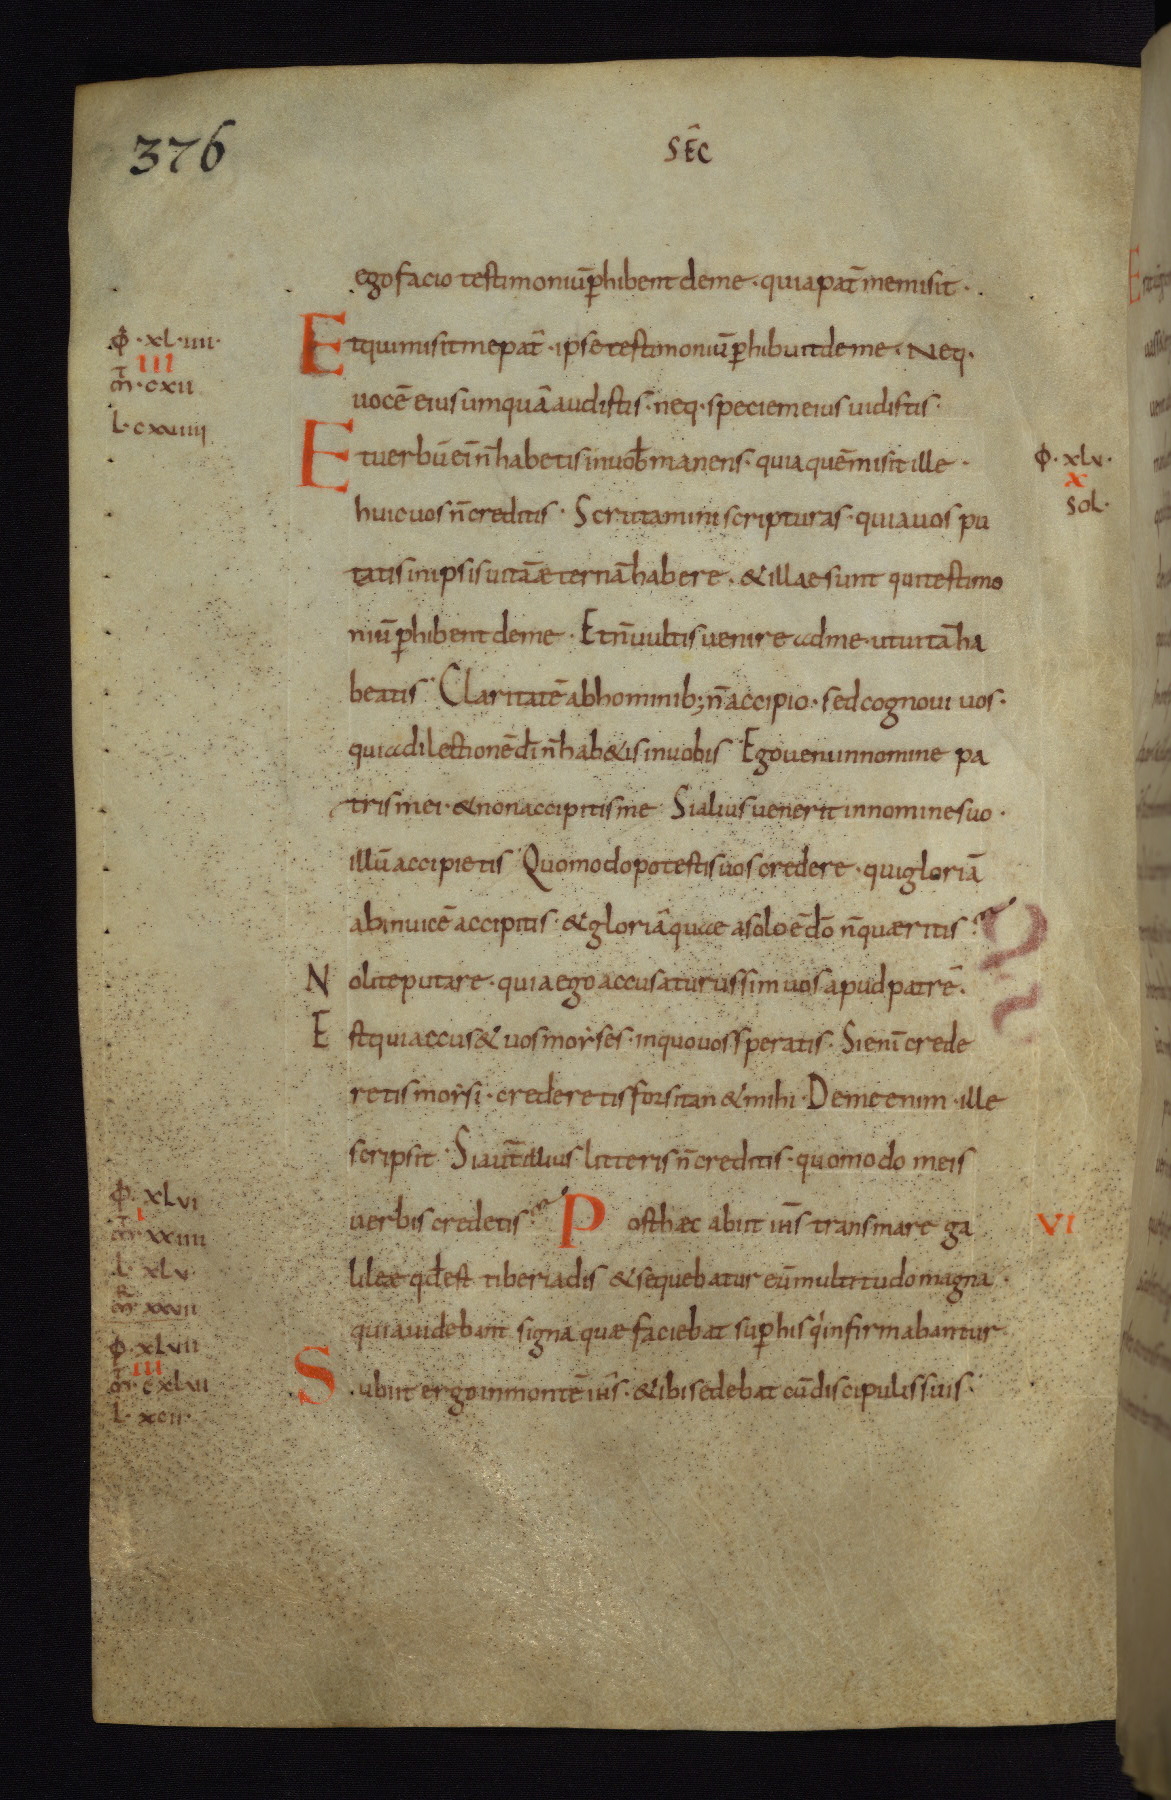 376
SEC̄
ego facio testimoniū p̄hibent de me · quia pat̄ me misit ·
Et qui misit me pat̄ · ipse testimoniū p̄hibuit de me · Neq·
uocē eius umquā audistis · neq· speciem eius uidistis ·
Et uerbū ei' n̄ habetis in uob̄ manens · quia quē misit ille ·
huic uos n̄ creditis · Scrutamini scripturas · quia uos pu
tatis in ipsis uitā æternā habere · & illae sunt qui testimo
niū p̄hibent de me · Et n̄ uultis uenire ad me · ut uitā ha
beatis · Claritatē ab hominib; n̄ accipio · sed cognoui uos ·
quia dilectionē dī n̄ hab&is in uobis · Ego ueni in nomine pa
tris mei · & non accipitis me · Si alius uenerit in nomine suo ·
illū accipietis · Quomodo potestis uos credere · qui gloriā
ab inuicē accipitis · & gloriā quae a solo ē dō n̄ quæritis ·
Nolite putare · quia ego accusaturus sim uos apud patrē ·
Est qui accus& uos moyses · in quo uos speratis · Si enī crede
retis moysi · crederetis forsitan & mihi · De me enim · ille
scripsit · Si aut̄ illius litteris n̄ creditis · quomodo meis
uerbis credetis · Post hæc abiit ih̄s trans mare ga
lileæ qd̄ est tiberiadis & sequebatur eū multitudo magna ·
quia uidebant signa quæ faciebat sup̄ his q¹ infirmabantur ·
Subiit ergo in montē ih̄s · & ibi sedebat cū discipulis suis ·
Φ · xl · iiii ·
III
m̄ · cxii
L · cxxiiii
Φ · xlv ·
x
sol ·
Φ · xlvi
I
m̄ · xxiiii
L · xlv
Φ · xlvii
III
m̄ · cxlvii
L · xcii ·
VI